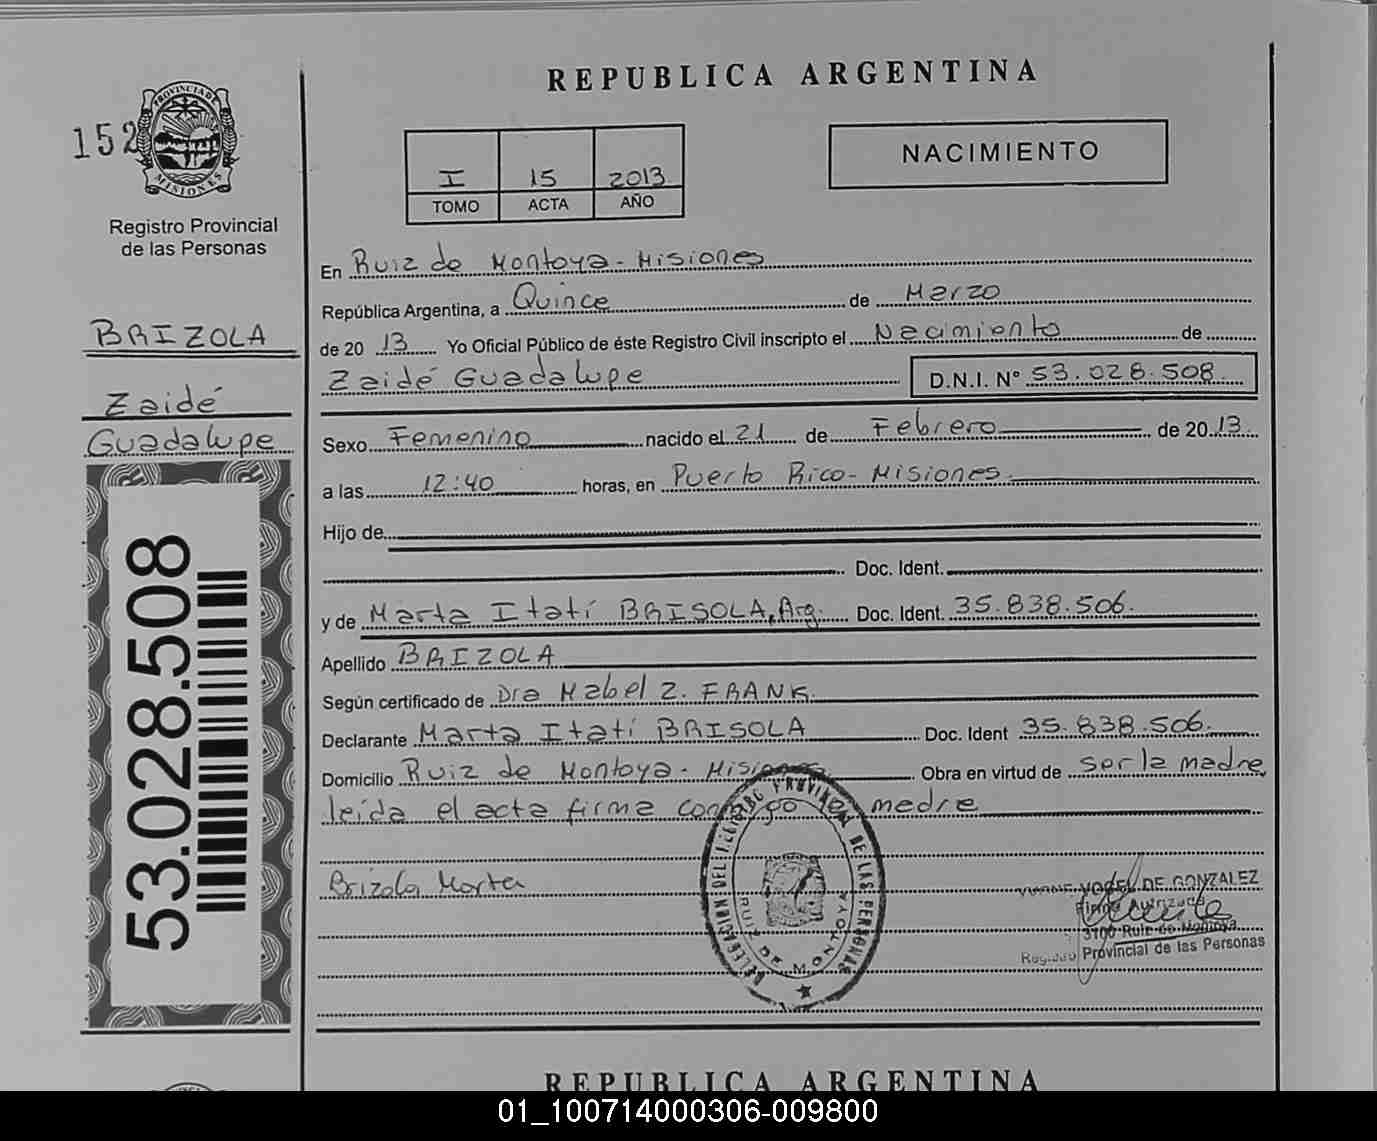 REPUBLICA ARGENTINA
152
PROVINCIA DE
MISIONES
Registro Provincial
de las Personas
I 15 2013
TOMO ACTA AÑO
NACIMIENTO
BRIZOLA
Zaidé
Guadalupe
53.028.508
En Ruiz de Montoya - Misiones
República Argentina, a Quince de Marzo
de 20 13 Yo Oficial Público de éste Registro Civil inscripto el Nacimiento de
Zaidé Guadalupe D.N.I. N° 53.028.508.
Sexo Femenino nacido el 21 de Febrero de 20 13
a las 12:40 horas, en Puerto Rico - Misiones
Hijo de
Doc. Ident.
y de Marta Itatí BRISOLA, Arg. Doc. Ident. 35.838.506.
Apellido BRIZOLA
Según certificado de Dra Mabel Z. FRANK.
Declarante Marta Itatí BRISOLA Doc. Ident 35.838.506.
Domicilio Ruiz de Montoya - Misiones Obra en virtud de ser la madre
leída el acta firma conmigo madre
Brizola Marta
DELEGACION DEL REGISTRO PROVINCIAL DE LAS PERSONAS
RUIZ DE MONTOYA
VOGEL DE GONZALEZ
Firma Autorizada
3100 Ruiz de Montoya
Registro Provincial de las Personas
REPUBLICA ARGENTINA
01_100714000306-009800